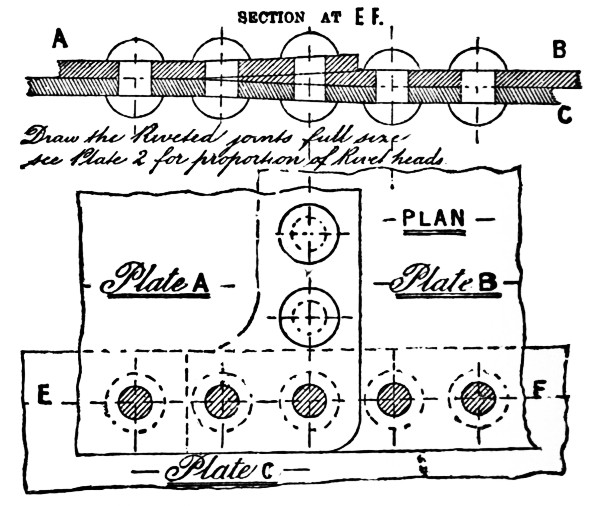 SECTION AT EF.
A
B
C
Draw the Riveted joints full size
see Plate 2 for proportion of Rivet heads.
- PLAN -
- Plate A -
- Plate B -
E
F
- Plate C -